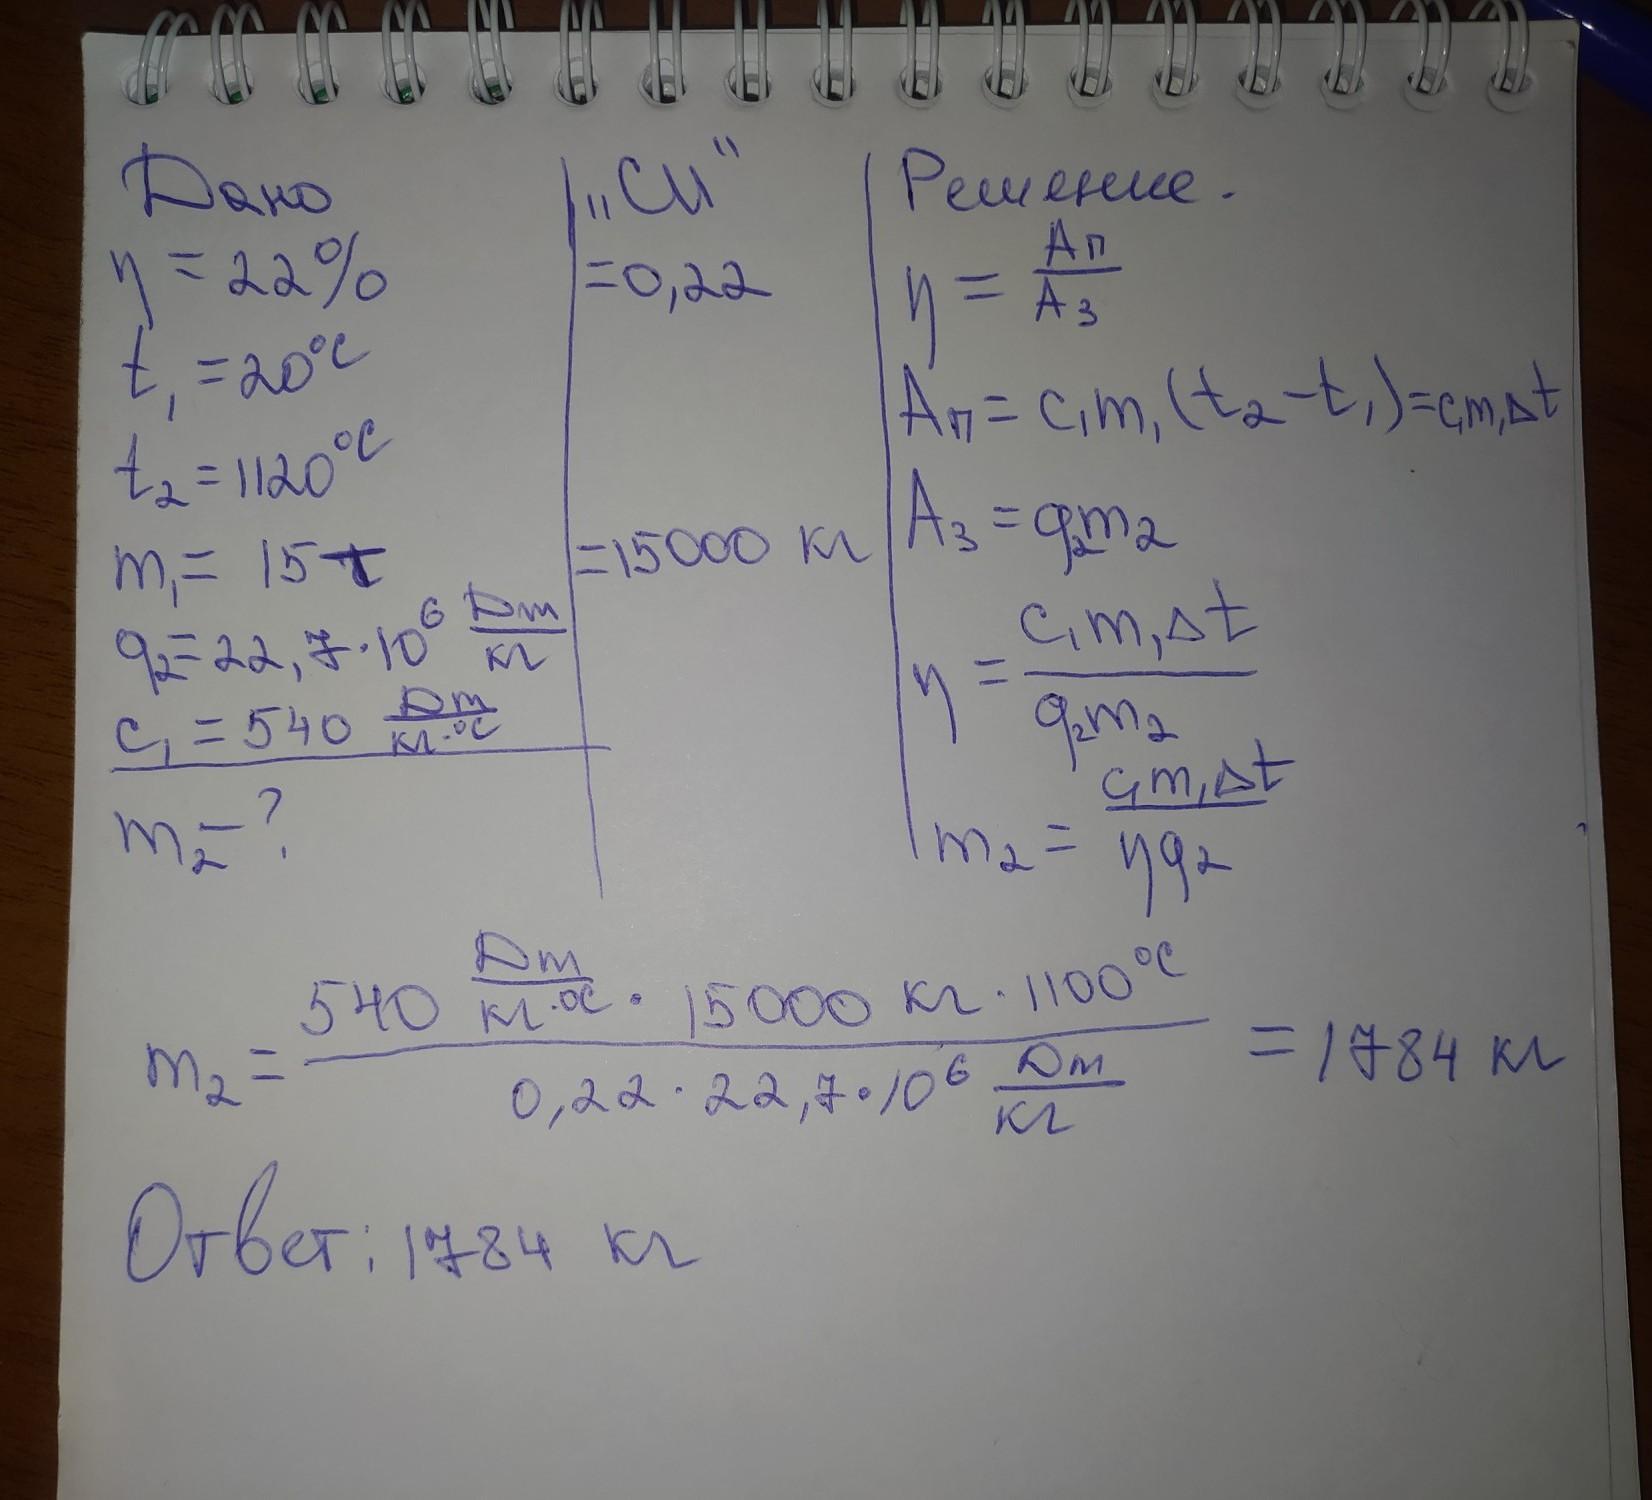 Дано
η = 22%
t₁ = 20°C
t₂ = 1120°C
m₁ = 15 т
q₂ = 22,7·10⁶ Dm/кг
c₁ = 540 Dm/кг·°C
m₂ - ?
„СИ“
= 0,22
= 15000 кг
Решение.
η = Aп/Aз
Aп = c₁m₁(t₂ - t₁) = c₁m₁Δt
Aз = q₂m₂
η = c₁m₁Δt/q₂m₂
m₂ = c₁m₁Δt/ηq₂
m₂ = 540 Dm/кг·°C · 15000 кг · 1100°C / 0,22 · 22,7·10⁶ Dm/кг = 1784 кг
Ответ: 1784 кг